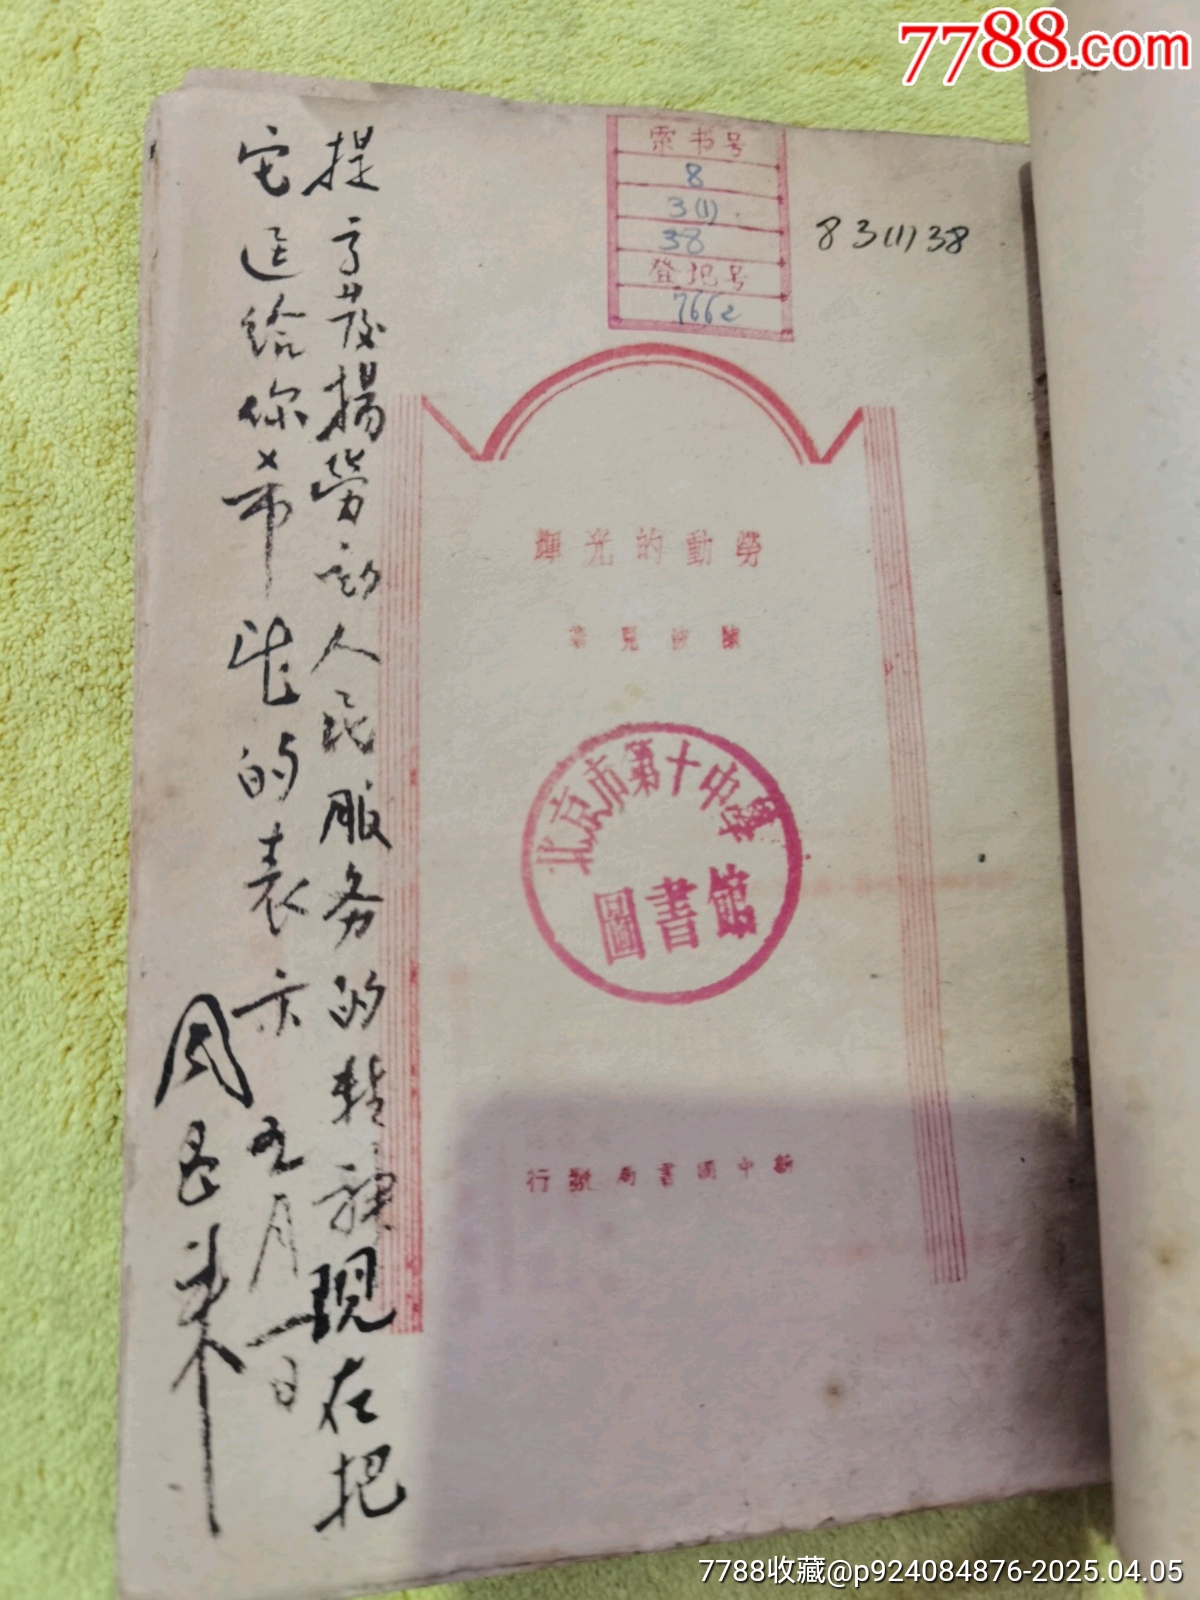 7788.com
索书号
8
3(1)
38
登记号
7662
8 3(1) 38
提高发揚劳动人民服务的精神現在把
它送给你希望的表示
五月一日
周恩来
輝光的動勞
著
北京市第十中學
圖書館
行發局書國中新
7788收藏@p924084876-2025.04.05